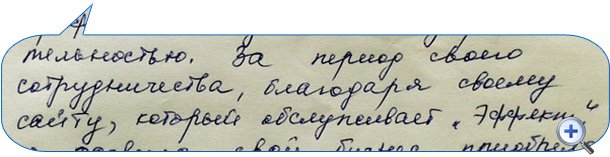 тельностью. За период своего
сотрудничества, благодаря своему
сайту, который обслуживает „Эффект“
свой бизнес